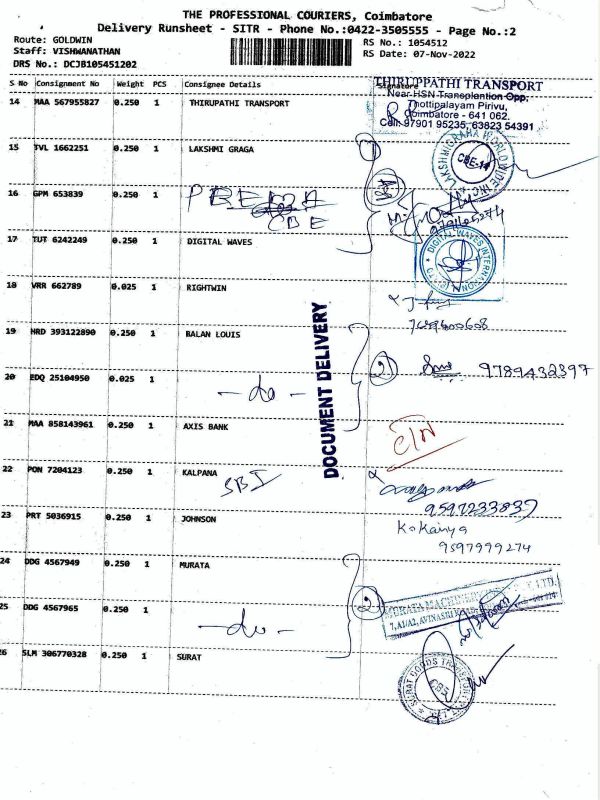 THE PROFESSIONAL COURIERS, Coimbatore
Delivery Runsheet - SITR - Phone No.:0422-3505555 - Page No.:2
Route: GOLDWIN
RS No.: 1054512
Staff: VISHWANATHAN
RS Date: 07-Nov-2022
DRS No.: DCJB105451202
S No Consignment No Weight PCS Consignee Details Signature
THIRUPPATHI TRANSPORT
Near HSN Transplantion Opp,
Thottipalayam Pirivu,
Coimbatore - 641 062.
Cell: 97901 95235, 63823 54391
14 MAA 567955827 0.250 1 THIRUPATHI TRANSPORT
15 TVL 1662251 0.250 1 LAKSHMI GRAGA
CBE-14
16 GPM 653839 0.250 1
CBE
17 TUT 6242249 0.250 1 DIGITAL WAVES
DIGITAL WAVES INTERNATIONAL
18 VRR 662789 0.025 1 RIGHTWIN
19 HRD 393122890 0.250 1 BALAN LOUIS
DOCUMENT DELIVERY
2
9789432397
20 EDQ 25104950 0.025 1
- do -
21 MAA 858143961 0.250 1 AXIS BANK
22 PON 7204123 0.250 1 KALPANA
SBI
9597233837
23 PRT 5036915 0.250 1 JOHNSON
9597999274
24 DDG 4567949 0.250 1 MURATA
2
25 DDG 4567965 0.250 1
- do -
26 SLM 306770328 0.250 1 SURAT
SURAT GOODS TRANSPORT
CBE